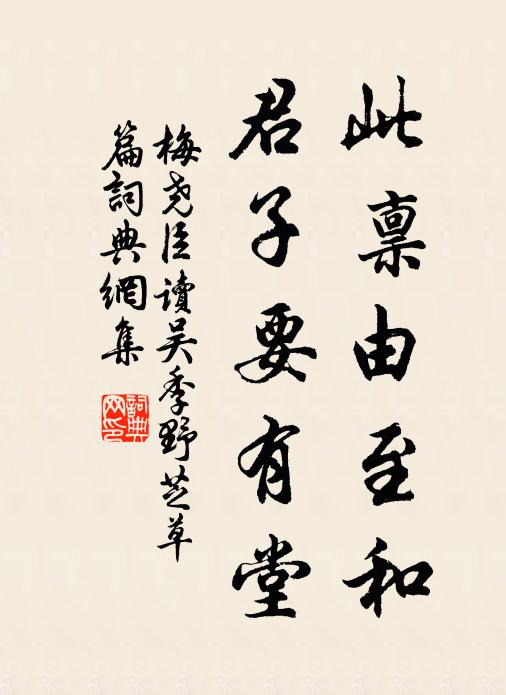 此稟由至和
君子要有堂
梅尧臣读吴季野芝草
篇詞典網集
詞典网印